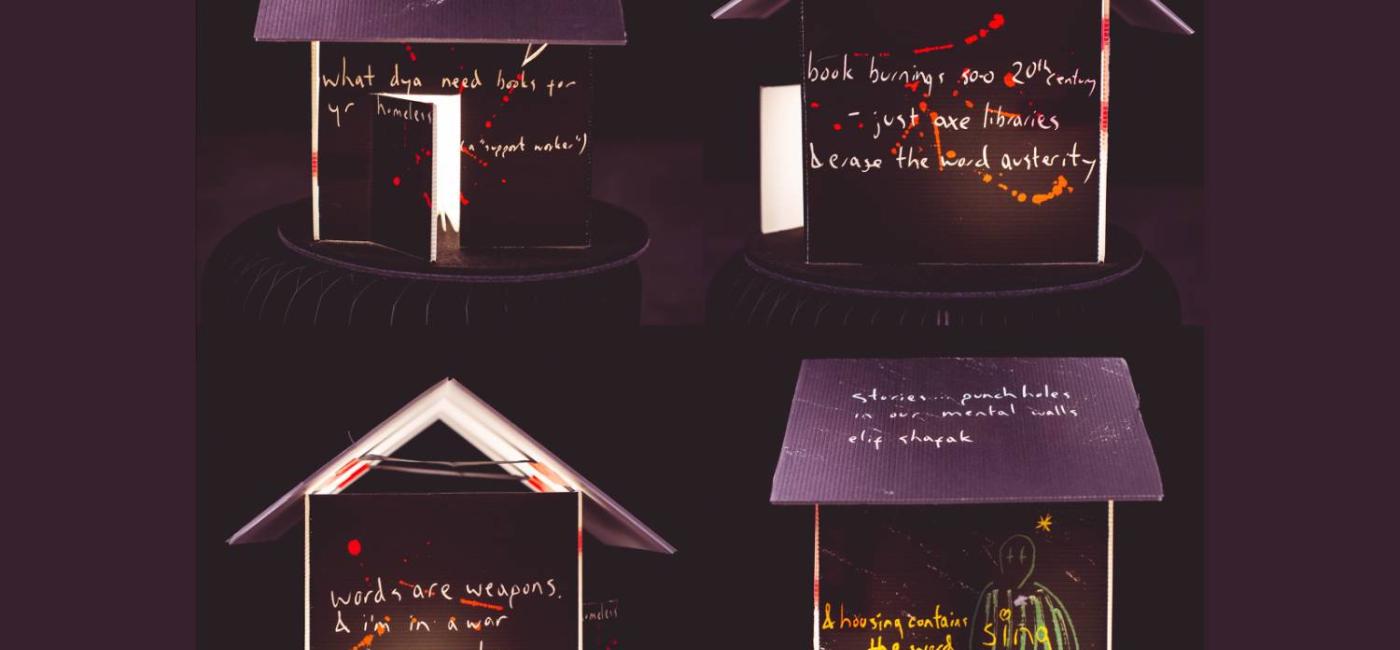 what dya need books for
yr homeless
(a "support worker")
book burning's soo 20th century
- just axe libraries
& erase the word austerity
words are weapons.
& i'm in a war
homeless
stories... punch holes
in our mental walls
elif shafak
& housing contains
the word
sing